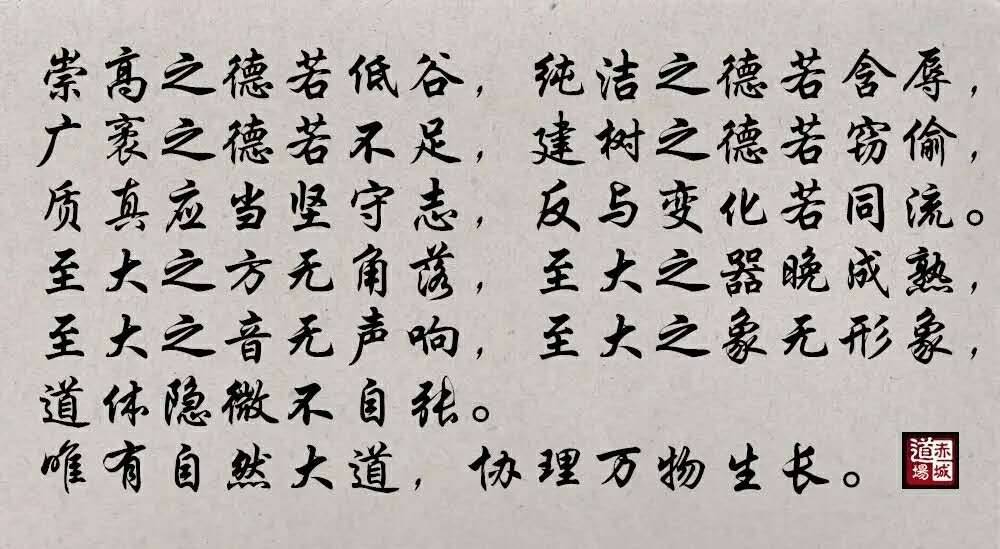 崇高之德若低谷，纯洁之德若含辱，
广袤之德若不足，建树之德若窃偷，
质真应当坚守志，反与变化若同流。
至大之方无角落，至大之器晚成熟，
至大之音无声响，至大之象无形象，
道体隐微不自张。
唯有自然大道，协理万物生长。
赤城道場